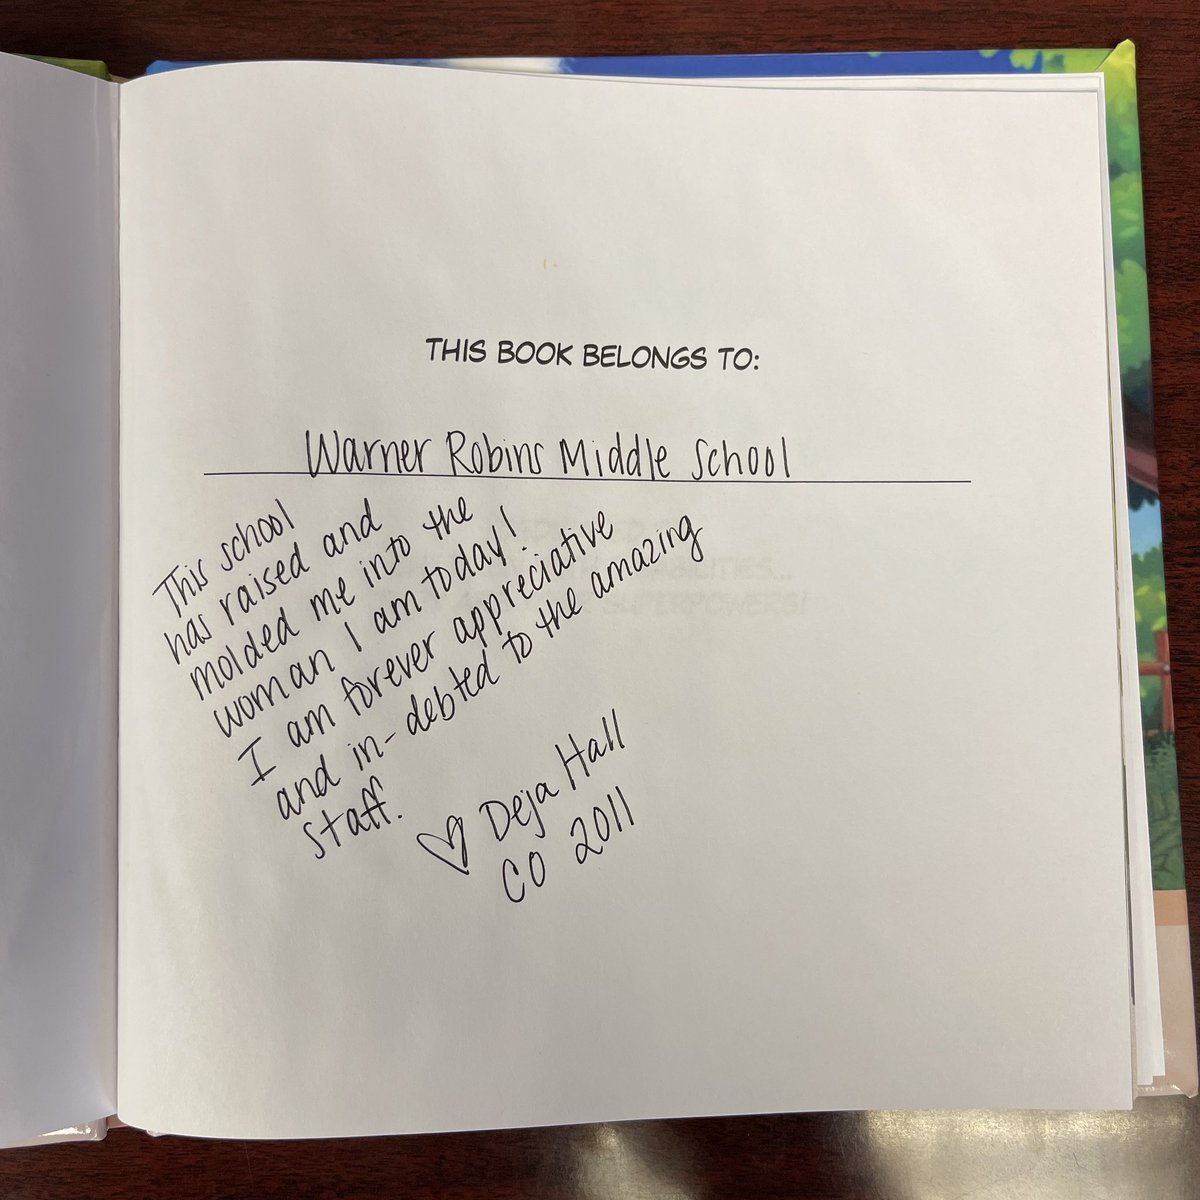 THIS BOOK BELONGS TO:
Warner Robins Middle School
This school
has raised and
molded me into the
woman I am today!
I am forever appreciative
and in-debted to the amazing
staff.
♡ Deja Hall
CO 2011
SUPERPOWERS!